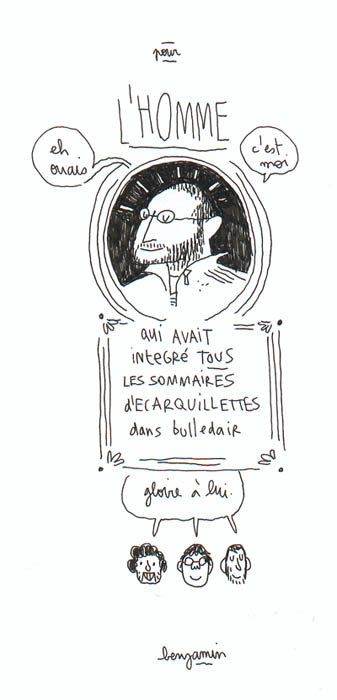 pour
L'HOMME
eh
ouais
c'est
moi
qui AVAIT
integré TOUS
LES SOMMAIRES
d'ECARQUILLETTES
dans bulledair
gloire à lui.
benjamin